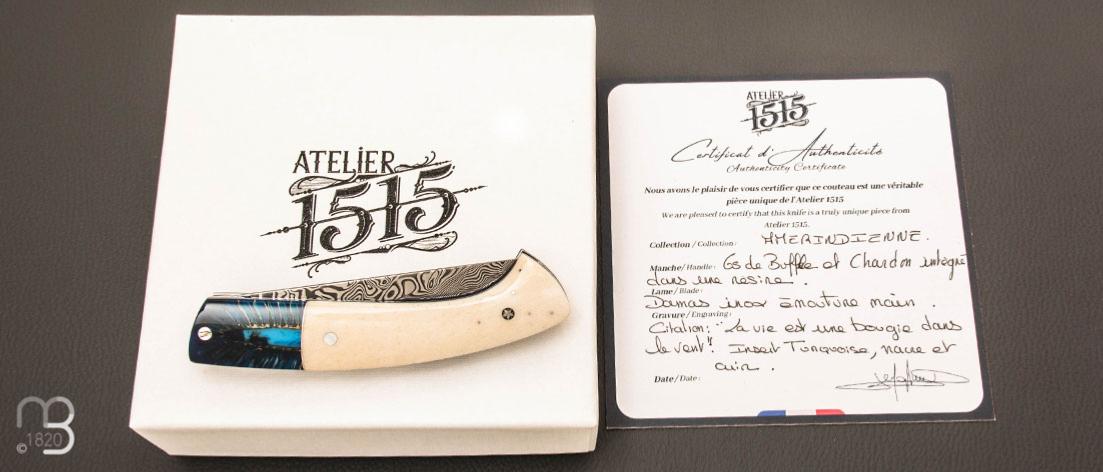 ATELIER
1515
ATELIER
1515
Certificat d'Authenticité
Authenticity Certificate
Nous avons le plaisir de vous certifier que ce couteau est une véritable
pièce unique de l'Atelier 1515
We are pleased to certify that this knife is a truly unique piece from
Atelier 1515.
Collection / Collection : AMERINDIENNE.
Manche / Handle : Os de Buffle et Chardon intégré
dans une résine.
Lame / Blade :
Damas inox émouture main.
Gravure / Engraving :
Citation : "La vie est une bougie dans
le vent". Insert Turquoise, nacre et
cuir.
Date / Date :
© 1820